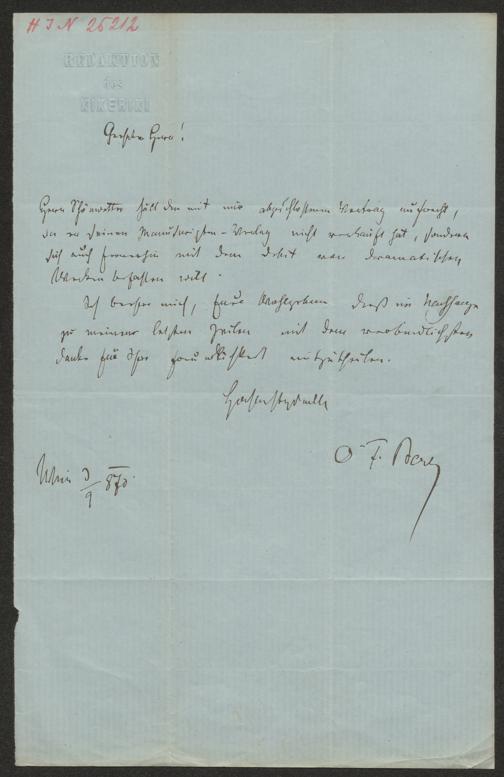 H I N 25212
REDAKTION
des
KIKERIKI
Geehrter Herr!
Herr Schönwetter hält den mit mir abgeschlossenen Vertrag aufrecht,
da er seinen Manuscripten-Verlag nicht verkauft hat, sondern
sich auch fernerhin mit dem Debit von dramatischen
Werken befassen will.
Ich beehre mich, Euer Wohlgeboren dieß im Nachhange
zu meinen letzten Zeilen mit dem verbindlichsten
Danke für Ihre Freundlichkeit mitzutheilen.
Hochachtungsvoll
O. F. Berg
Wien 3/9 870.